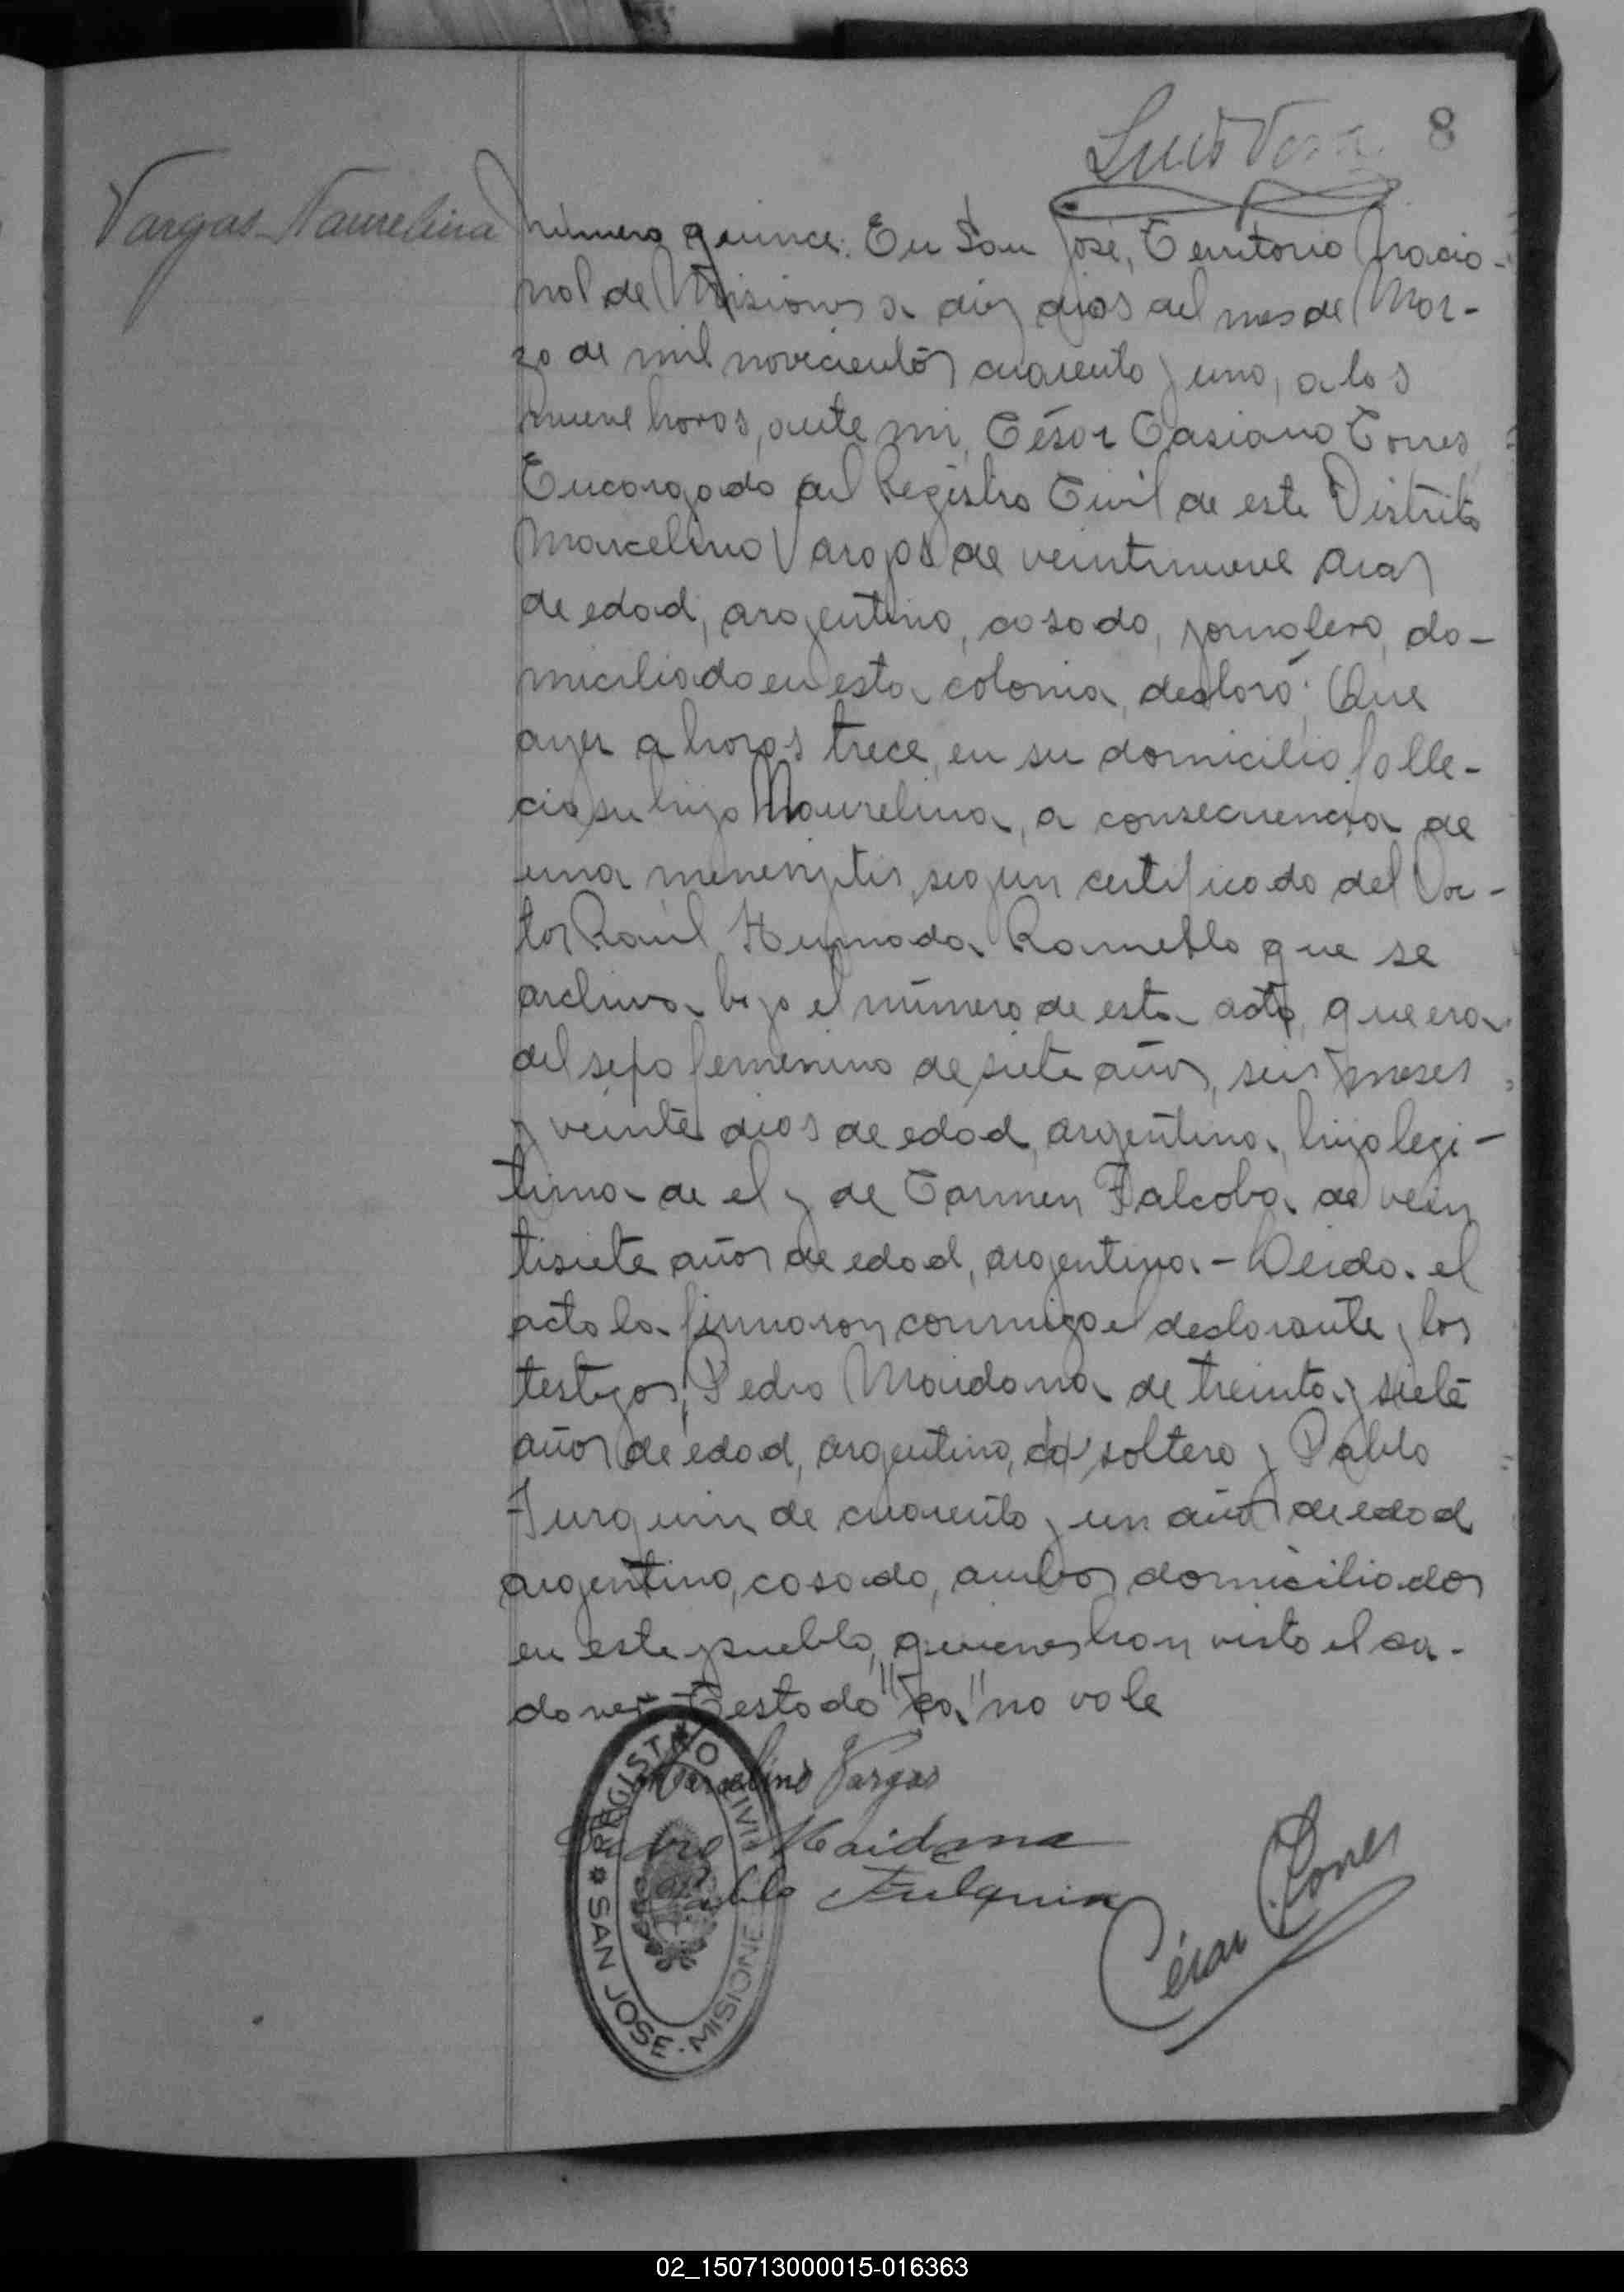 8
Luis Vera
Vargas Naurelina
Número quince. En San José, Territorio Nacio-
nal de Misiones a diez dias del mes de Mar-
zo de mil novecientos cuarenta y uno, a las
nueve horas, ante mi, César Casiano Torres
Encargado del Registro Civil de este Distrito
Marcelino Vargas de veintinueve años
de edad, argentino, casado, jornalero, do-
miciliado en esta colonia, declaró: Que
ayer a horas trece, en su domicilio falle-
cio su hija Naurelina, a consecuencia de
una meningitis, segun certificado del Doc-
tor Raúl que se
archiva bajo el número de esta acta, que era
del sexo femenino de siete años, seis meses
y veinte dias de edad, argentina, hija legi-
tima de el y de Carmen Falcoba de vein
tisiete años de edad, argentina.- Leida el
acta la firmaron conmigo el declarante y los
testigos, Pedro Maidana de treinta y siete
años de edad, argentino, ca soltero y Pablo
Furquin de cuarenta y un años de edad
argentino, casado, ambos domiciliados
en este pueblo, quienes han visto el ca-
daver. Testado "ca" no vale
Marcelino Vargas
Pedro Maidana
Pablo Fulquin
César Torres
REGISTRO CIVIL
* SAN JOSE · MISIONES
02_150713000015-016363